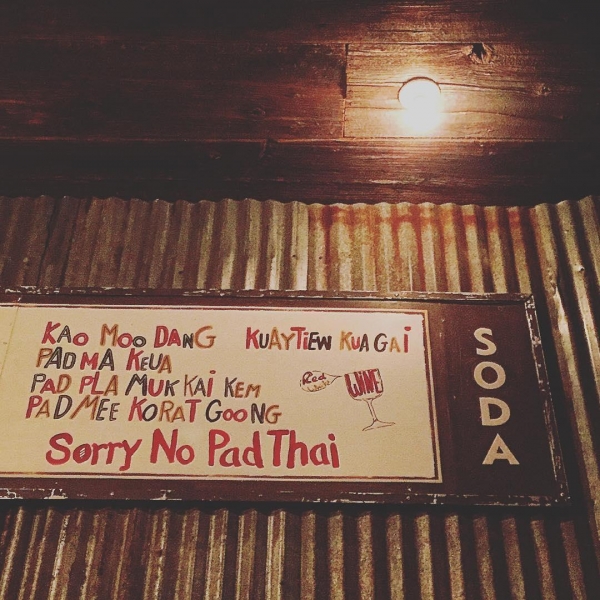 KAO MOO DANG KUAYTIEW KUA GAI
PAD MA KEUA
PAD PLA MUK KAI KEM
PAD MEE KORAT GOONG
Sorry No Pad Thai
Red
WINE
SODA